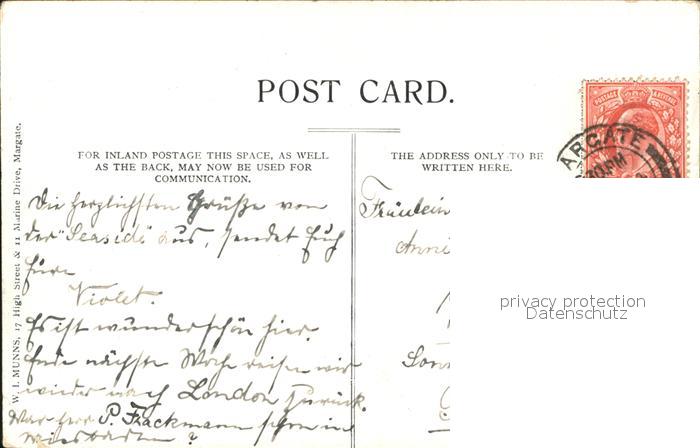 POST CARD.
FOR INLAND POSTAGE THIS SPACE, AS WELL
AS THE BACK, MAY NOW BE USED FOR
COMMUNICATION.
THE ADDRESS ONLY TO BE
WRITTEN HERE.
W. J. MUNNS, 17 High Street & 11 Marine Drive, Margate.
Die herzlichsten Grüße von
der "Seaside" aus, sendet Euch
Eure
Violet.
Es ist wunderschön hier.
Ende nächste Woche reisen wir
wieder nach London zurück.
War Herr P. Frackmann schon in
Wiesbaden?
Fräulein
Anni
ARGATE
POSTAGE
privacy protection
Datenschutz